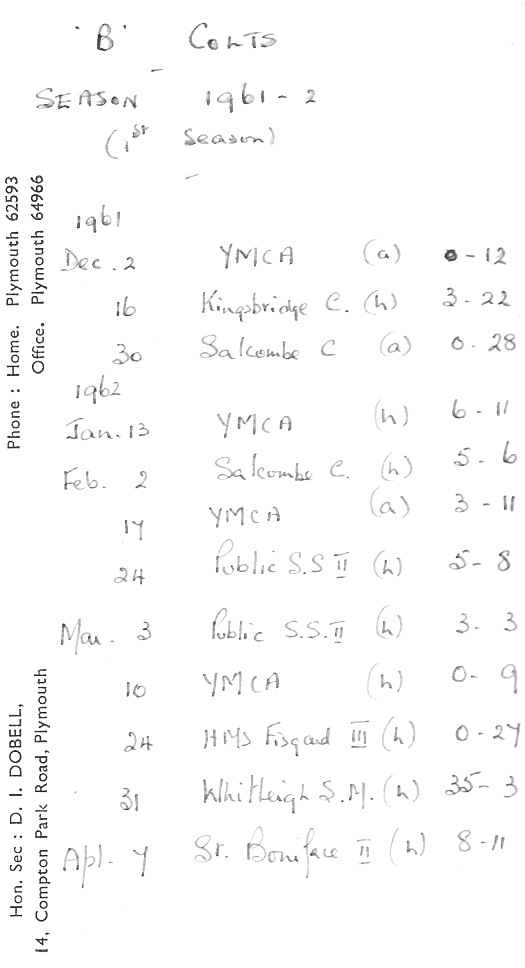 'B' COLTS
SEASON 1961-2
(1st Season)
1961
Dec. 2 YMCA (a) 0-12
16 Kingsbridge C. (h) 3-22
30 Salcombe C (a) 0-28
1962
Jan. 13 YMCA (h) 6-11
Feb. 2 Salcombe C. (h) 5-6
17 YMCA (a) 3-11
24 Public S.S II (h) 5-8
Mar. 3 Public S.S. II (h) 3-3
10 YMCA (h) 0-9
24 HMS Fisgard III (h) 0-27
31 Whitleigh S.M. (h) 35-3
Apl. 7 St. Boniface II (h) 8-11
Phone : Home. Plymouth 62593
Office. Plymouth 64966
Hon. Sec : D. I. DOBELL,
14, Compton Park Road, Plymouth